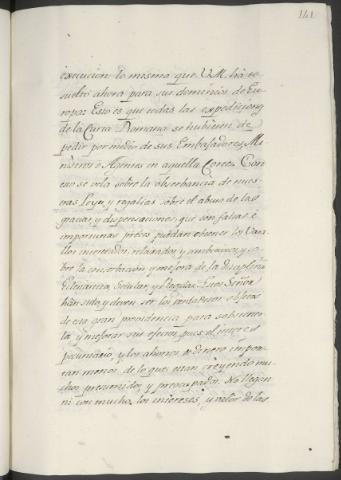 141
execucion lo misma que V.M. ha re
suelto ahora para sus dominios de Eu
ropa: Esto es que todas las expediciones
de la Curia Romana se hubiesen de
pedir por medio de sus Embajadores, Mi
nistros o Agentes en aquella Corte. Con
esto se vela sobre la observancia de nues
tras Leyes y regalias sobre el abuso de las
gracias, y dispensaciones, que con falsas e
importunas preces puedan obtener los Vasa
llos interesados, relaxados y ambiciosos, y so
bre la conservacion y mejora de la disciplina
Eclesiastica, Secular y Regular. Estos Señor
han sido, y deven ser los verdaderos objetos
de esta gran providencia para
y mejorar sus efectos, pues el interes
pecuniario, y los ahorros de dinero impor
tan menos de lo que estan creyendo mu
chos presumidos y preocupados. No llegan
ni con mucho, los intereses, y valor de las